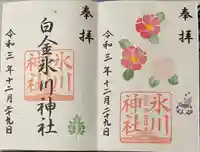 奉拝
白金氷川神社
令和三年十二月二十九日
氷川
神社
奉拝
令和三年十二月二十九日
氷川
神社